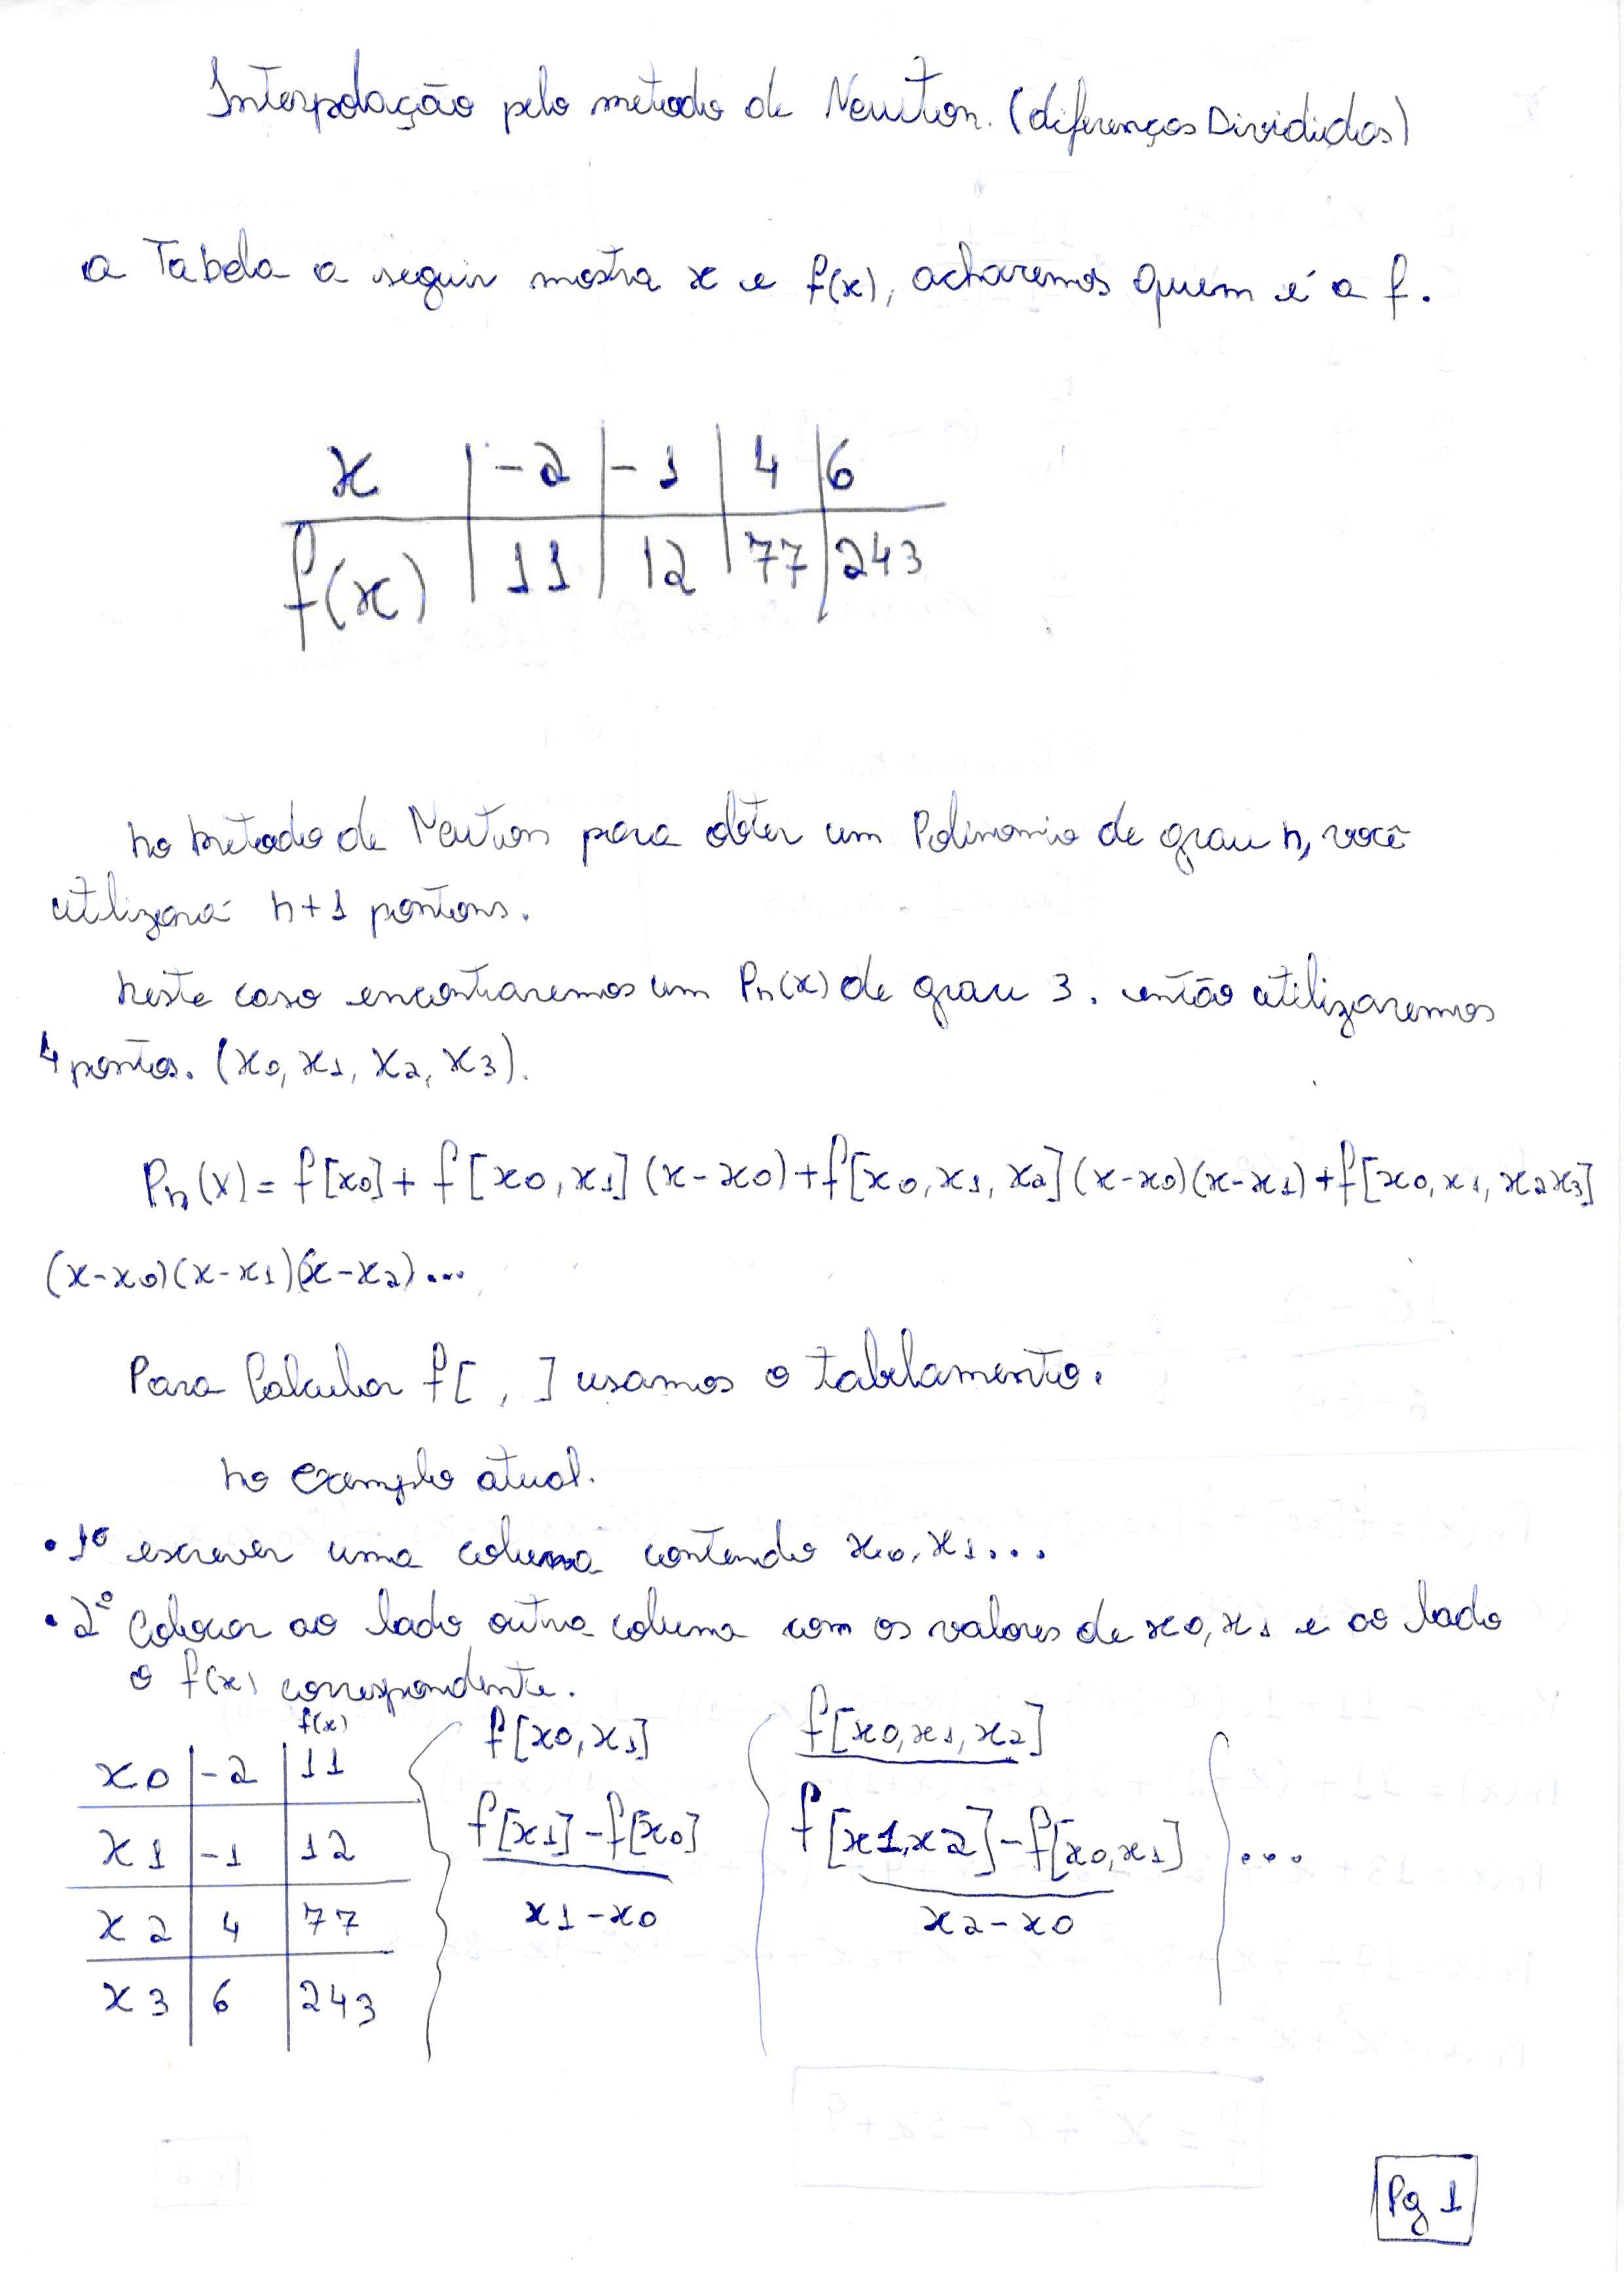 Interpolação pelo metodo de Newton. (diferenças Divididas)
a Tabela a seguir mostra x e f(x), acharemos quem é a f.
x | -2 | -1 | 4 | 6
f(x) | 11 | 12 | 77 | 243
no metodo de Newton para obter um Polinomio de grau n, você
utilizará n+1 pontons.
neste caso encontraremos um Pn(x) de grau 3. então utilizaremos
4 pontos. (x0, x1, x2, x3).
Pn(x) = f[x0] + f[x0, x1] (x-x0) + f[x0, x1, x2] (x-x0)(x-x1) + f[x0, x1, x2x3]
(x-x0)(x-x1)(x-x2)...
Para Calcular f[ , ] usamos o tabelamento.
no exemplo atual.
• 1º escrever uma coluna contendo x0, x1...
• 2º Colocar ao lado outra coluna com os valores de x0, x1 e ao lado
o f(x) correspondente.
f(x) f[x0, x1] f[x0, x1, x2]
x0 | -2 | 11
x1 | -1 | 12 f[x1] - f[x0] f[x1,x2] - f[x0,x1] ...
x2 | 4 | 77 x1 - x0 x2 - x0
x3 | 6 | 243
Pg 1